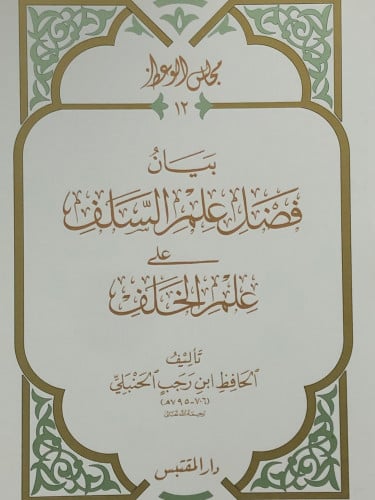 ٥
مجالس الوعظ
١٢
بَيَانُ
فَضْلِ عِلْمِ السَّلَفِ
عَلَى
عِلْمِ الْخَلَفِ
تَأْلِيفُ
الحَافِظِ ابْنِ رَجَبٍ الحَنْبَلِيِّ
(٧٠٦-٧٩٥هـ)
رحمه الله تعالى
دار المقتبس